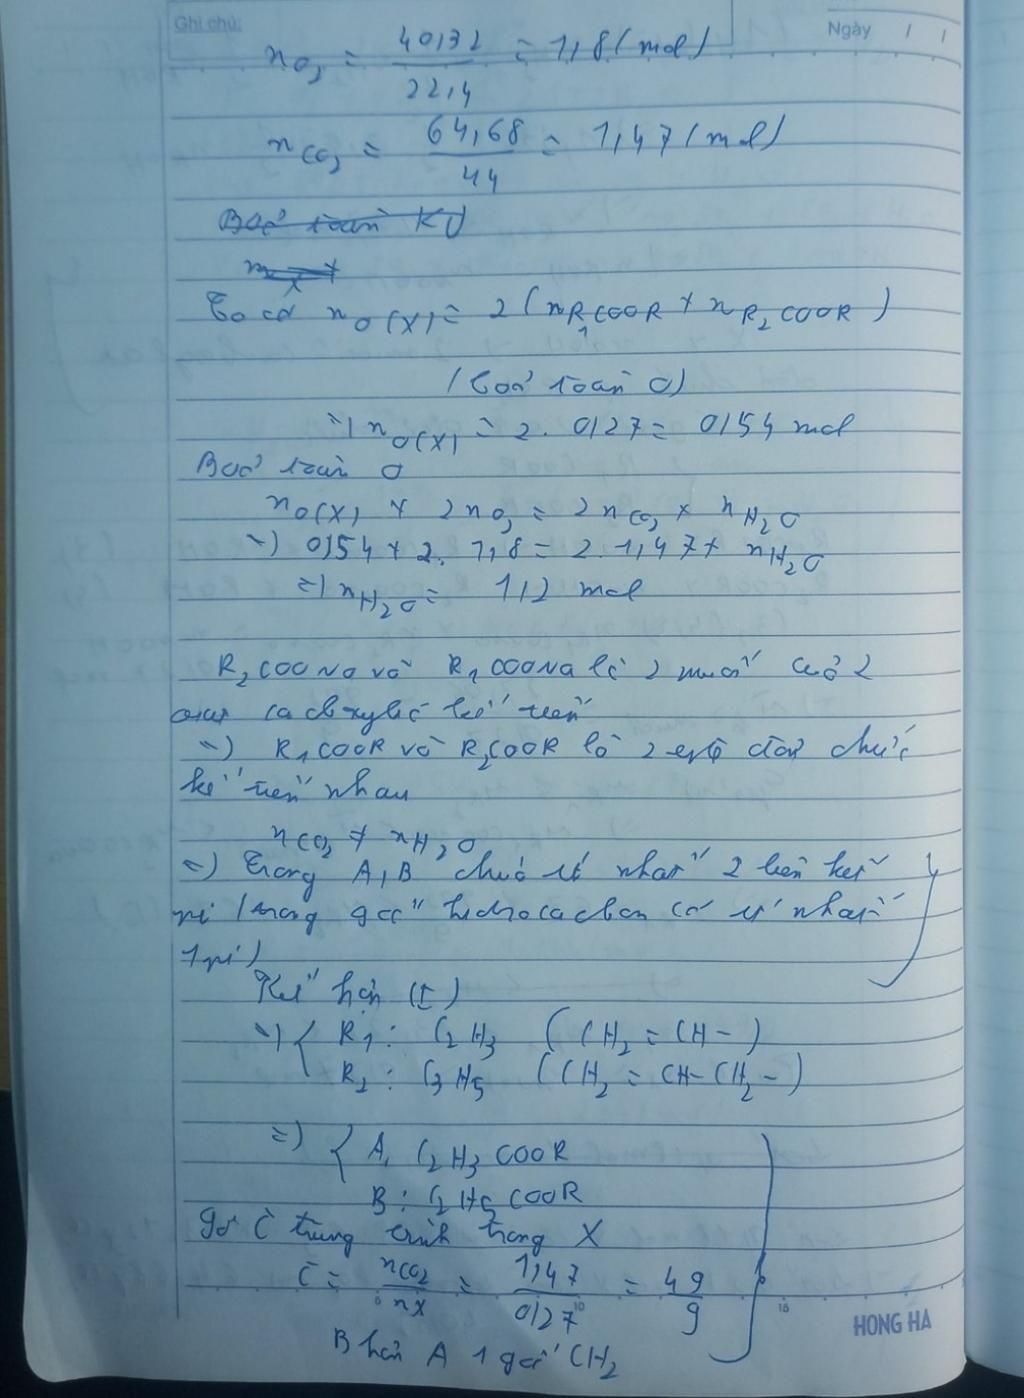 Ghi chú:
Ngày / /
n O2 = 40,32 / 22,4 = 1,8 (mol)
n CO2 = 64,68 / 44 = 1,47 (mol)
Bảo toàn KL
m X +
Ta có n O(X) = 2 (n R1COOR + n R2COOR)
(bảo toàn O)
=) n O(X) = 2. 0,27 = 0,54 mol
Bảo toàn O
n O(X) + 2n O2 = 2n CO2 + n H2O
=) 0,54 + 2. 1,8 = 2. 1,47 + n H2O
=) n H2O = 1,2 mol
R2COONa và R1COONa là 2 muối của 2
axit cacboxylic kế tiếp
=) R1COOR và R2COOR là 2 este đơn chức
kế tiếp nhau
n CO2 ≠ n H2O
=) Trong A, B chứa ít nhất 2 liên kết
pi (trong gốc hidrocacbon có ít nhất
1 pi)
Kết hợp (I)
=) { R1: C2H3 (CH2 = CH - )
R2: C3H5 (CH2 = CH - CH2 - )
=) { A: C2H3COOR
B: C2H5COOR
Gọi C trung bình trong X
C = nCO2 / nX = 1,47 / 0,27 = 49 / 9
B hơn A 1 gốc CH2
6 10 15
HONG HA